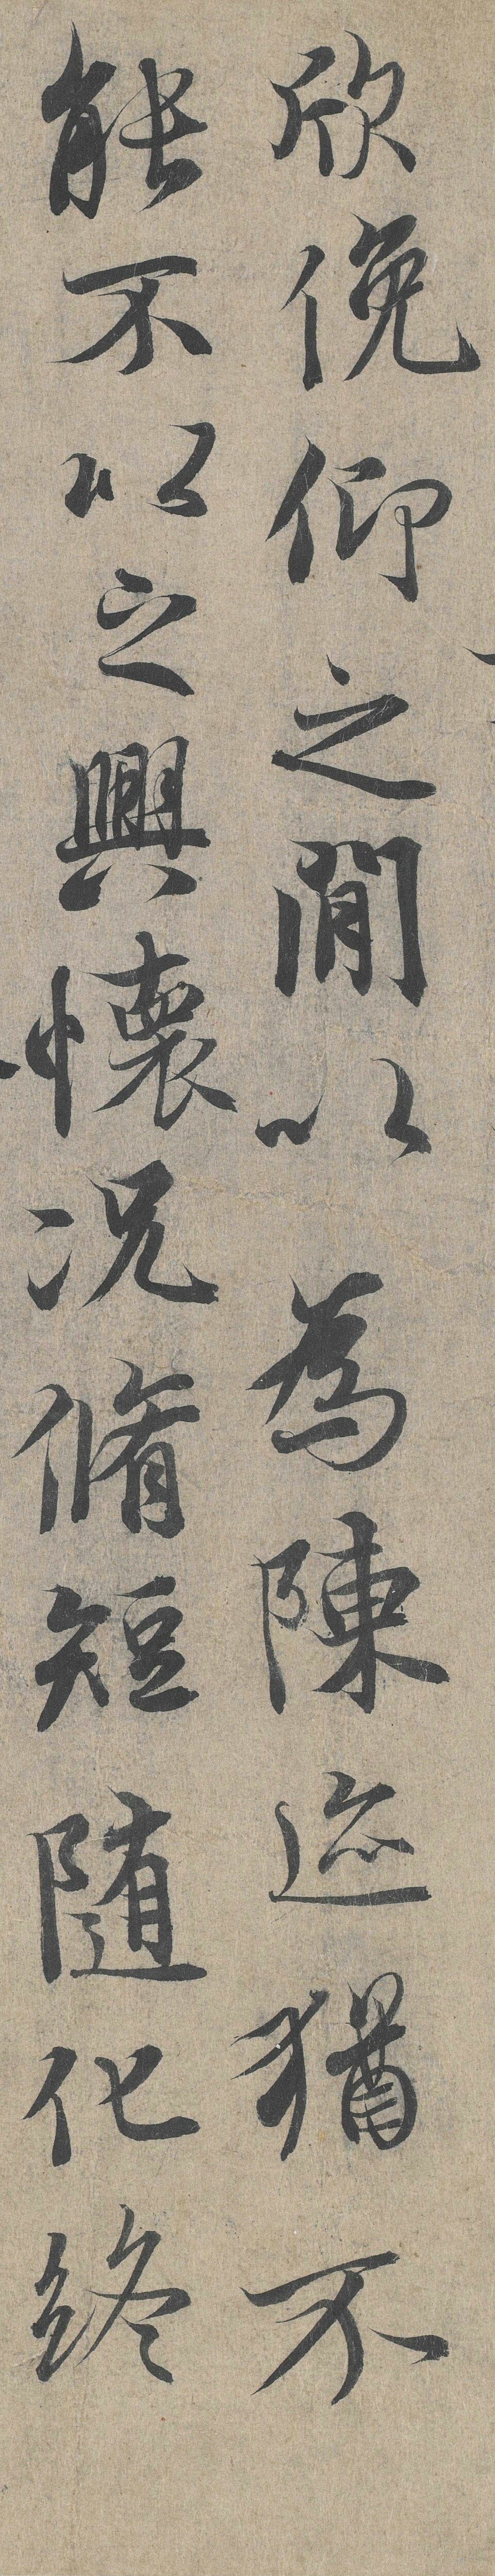 欣俛仰之閒以為陳迹猶不
能不以之興懷况脩短隨化終